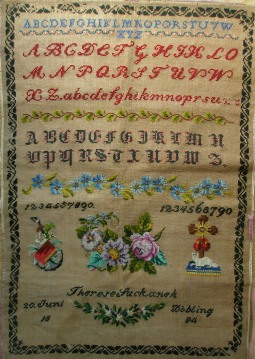 ABCDEFGHIJKLMNOPQRSTUVW
XYZ
ABCDEFGHIKLO
MNPQRSTUVW
XZ.abcdefghikmnoprsu
ABCDEFGHIJKLMN
OPQRSTXUVW Z.
1234567890. 1234568790
Therese Suckanek
20. Juni Döbling
18 84